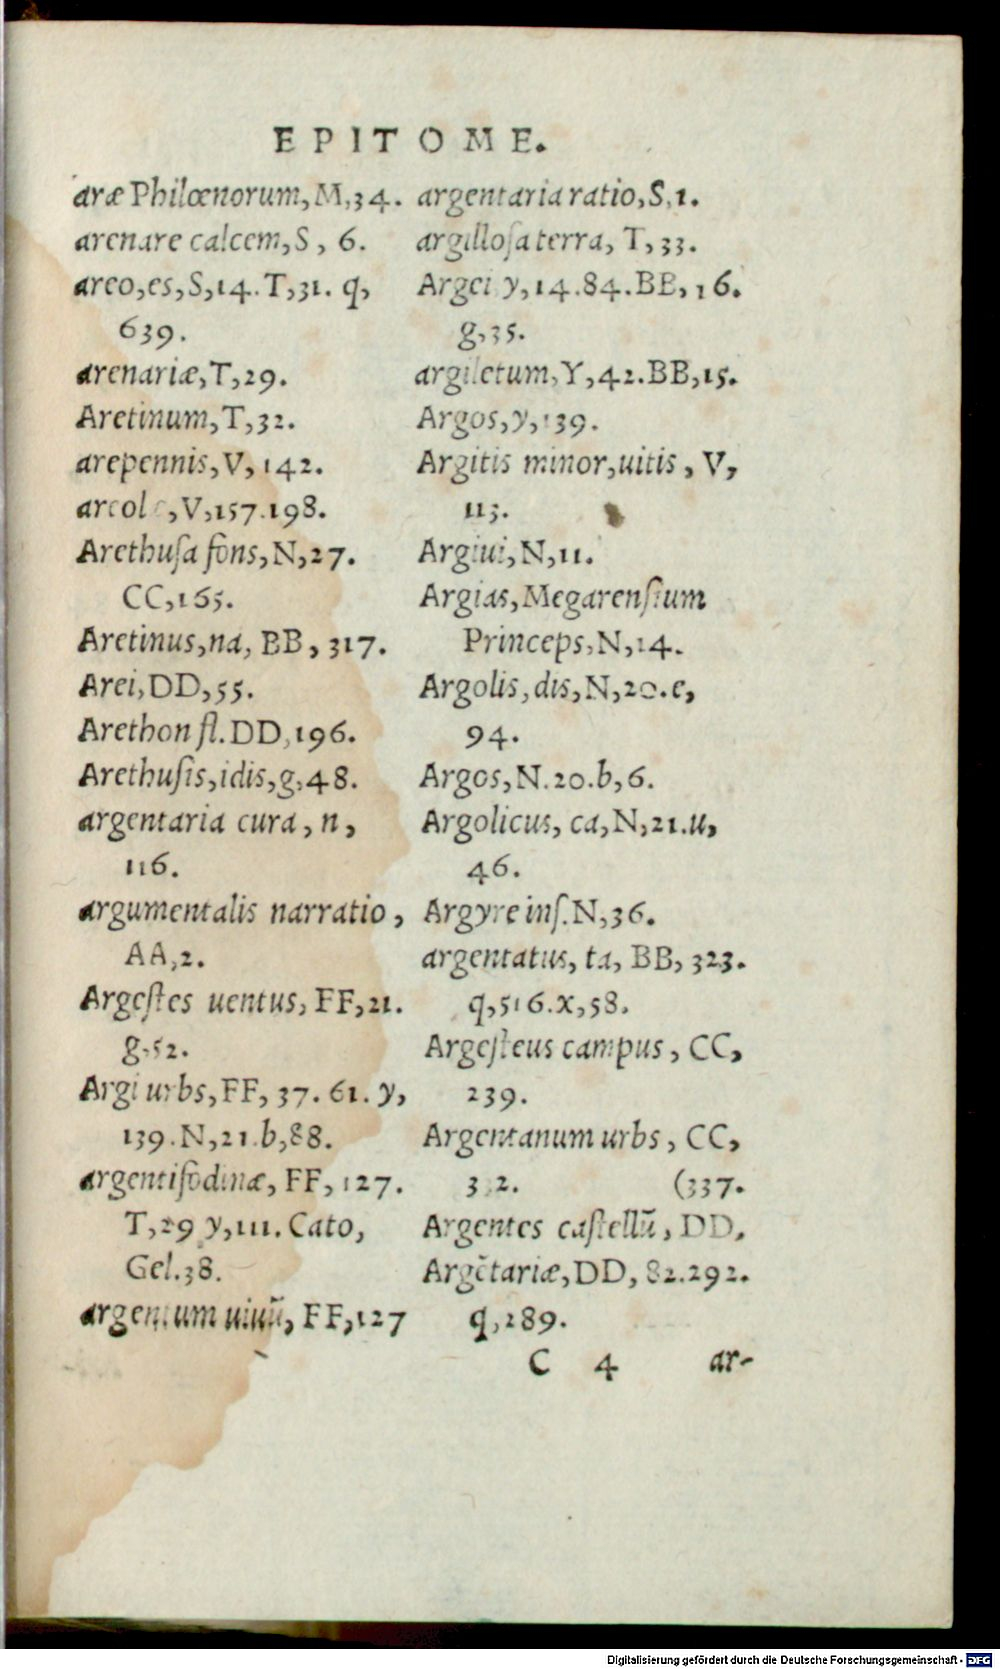 EPITOME.
aræ Philœnorum, M, 34.
arenare calcem, S, 6.
areo, es, S, 14. T, 31. q,
639.
arenariæ, T, 29.
Aretinum, T, 32.
arepennis, V, 142.
V, 157.198.
Arethuſa fons, N, 27.
CC, 165.
Aretinus, na, BB, 317.
Arei, DD, 55.
Arethon fl. DD, 196.
Arethuſis, idis, g, 48.
argentaria cura, n,
116.
argumentalis narratio,
AA, 2.
Argeſtes uentus, FF, 21.
g, 52.
Argi urbs, FF, 37. 61. y,
139. N, 21. b, 88.
argentifodinæ, FF, 127.
T, 29 y, 111. Cato,
Gel. 38.
argentum uiuũ, FF, 127
argentaria ratio, S, 1.
argilloſa terra, T, 33.
Argei y, 14.84. BB, 16.
g, 35.
argiletum, Y, 42. BB, 15.
Argos, y, 139.
Argitis minor, uitis, V,
113.
Argiui, N, 11.
Argias, Megarenſium
Princeps, N, 14.
Argolis, dis, N, 20. e,
94.
Argos, N. 20. b, 6.
Argolicus, ca, N, 21. u,
46.
Argyre inſ. N, 36.
argentatus, ta, BB, 323.
q, 516. x, 58.
Argeſteus campus, CC,
239.
Argentanum urbs, CC,
(337.
Argentes caſtellũ, DD,
Argẽtariæ, DD, 82.292.
q, 289.
C 4 ar-
Digitalisierung gefördert durch die Deutsche Forschungsgemeinschaft - DFG